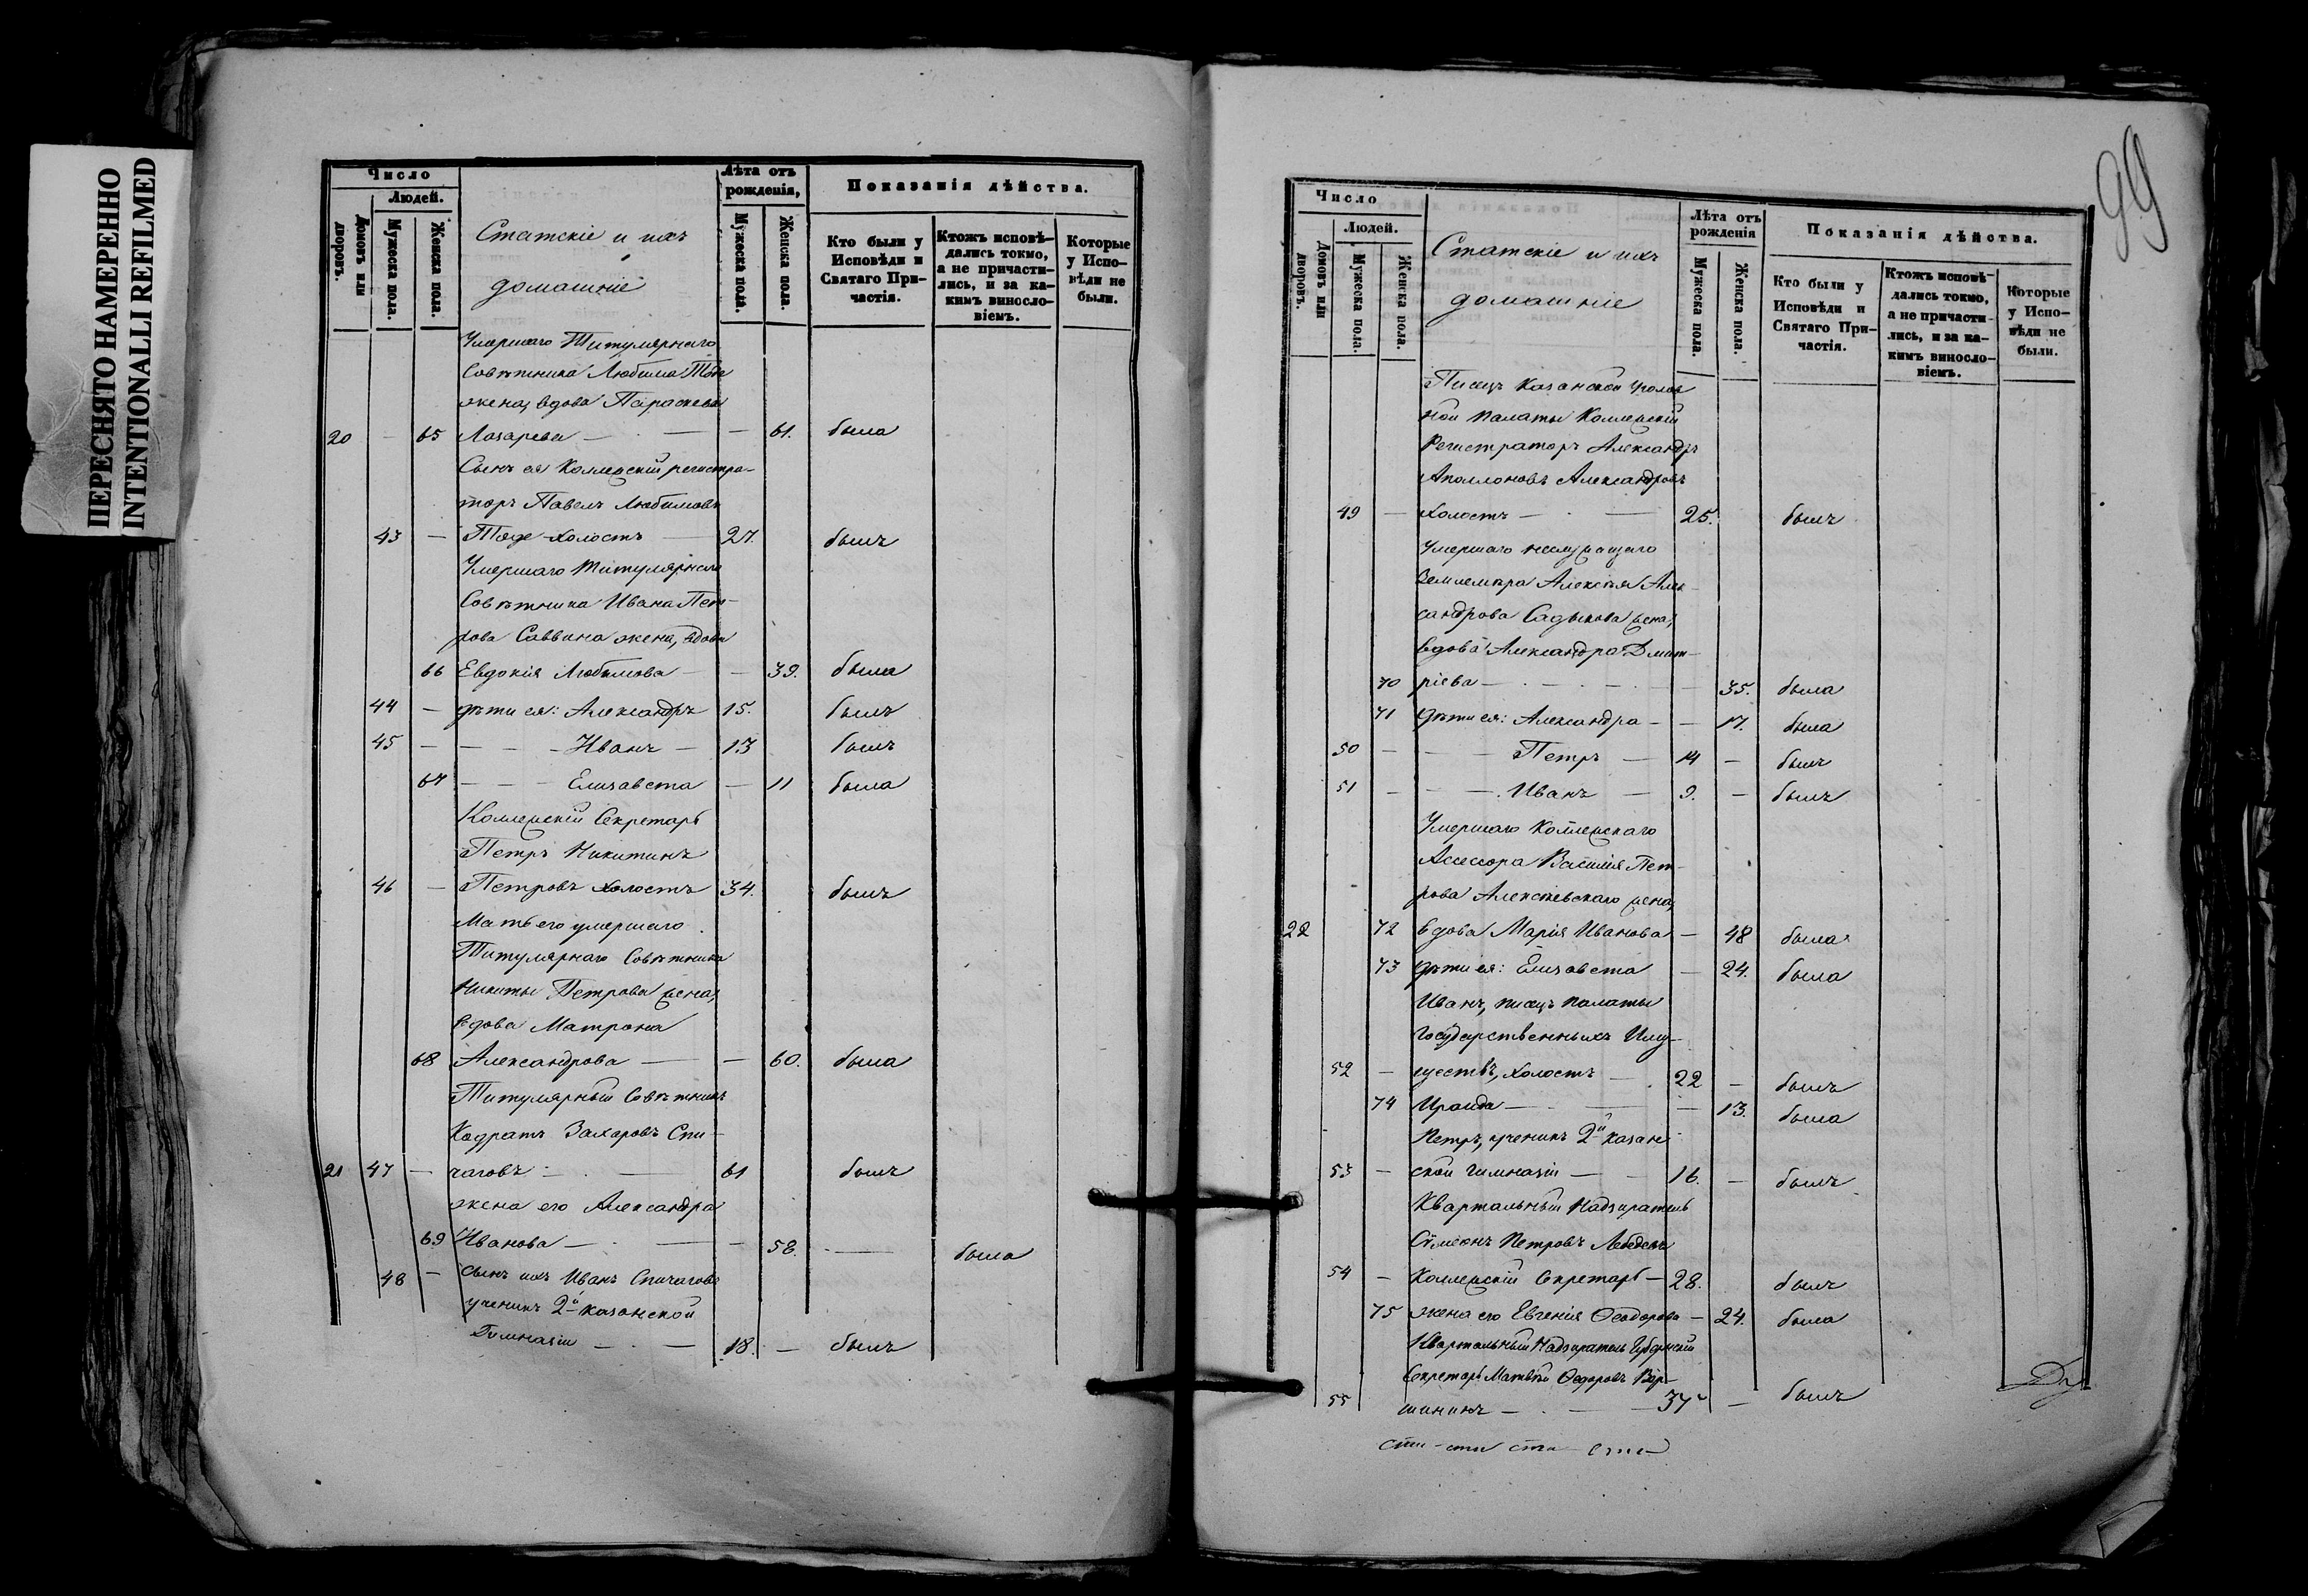 ПЕРЕСНЯТО НАМЕРЕННО
INTENTIONALLI REFILMED
Число
Людей.
Домовъ или дворовъ.
Мужеска пола.
Женска пола.
Статскіе и ихъ
домашніе
Лѣта отъ рожденія,
Мужеска пола.
Женска пола.
Показанія дѣйства.
Кто были у Исповѣди и Святаго Причастія.
Ктожъ исповѣдались токмо, а не причастились, и за какимъ винословіемъ.
Которые у Исповѣди не были.
Умершаго Титулярнаго
Совѣтника Любима
жена, вдова Параскева
20 – 65 Лазарева – – 61. была
Сынъ ея Коллежскій регистра-
торъ Павелъ Любимовъ
43 – холостъ – 27. былъ
Умершаго Титулярнаго
Совѣтника Ивана Пет-
рова Саввина жена, вдова
66 Евдокія Любимова – – 39. была
44 – дѣти ея: Александръ 15. былъ
45 – – – – Иванъ – 13 былъ
67 – – – Елизавета – 11 была
Коллежскій Секретарь
Петръ Никитинъ
46 – Петровъ холостъ 34. былъ
Мать его умершаго
Титулярнаго Совѣтника
Никиты Петрова жена,
вдова Матрона
68 Александрова – – 60. была
Титулярный Совѣтникъ
Кодратъ Захаровъ Спи-
21 47 – чаговъ – – 61 былъ
жена его Александра
69 Иванова – – – 58. – была
48 – Сынъ ихъ Иванъ Спичаговъ
ученикъ 2й Казанской
Гимназіи – – 18. – былъ
99
Число
Людей.
Домовъ или дворовъ.
Мужеска пола.
Женска пола.
Статскіе и ихъ
домашніе
Лѣта отъ рожденія
Мужеска пола.
Женска пола.
Показанія дѣйства.
Кто были у Исповѣди и Святаго Причастія.
Ктожъ исповѣдались токмо, а не причастились, и за какимъ винословіемъ.
Которые у Исповѣди не были.
Писецъ Казанской Уголов
ной Палаты Коллежскій
Регистраторъ Александръ
Аполлоновъ Александровъ
49 – холостъ – – 25. былъ
Умершаго
Землемѣра Алексѣя Алек-
сандрова Садыкова жена,
вдова Александра Дмит-
70 ріева – – – – 35. была
71 Дѣти ея: Александра – – 17. была
50 – – – Петръ – 14 – былъ
51 – – – Иванъ – 9. – былъ
Умершаго Коллежскаго
Асессора Василія Пет-
рова Алексѣевскаго жена,
22 72 вдова Марія Иванова – 48 была
73 Дѣти ея: Елизавета – 24. была
Иванъ, писецъ палаты
Государственныхъ Иму-
52 – ществъ, холостъ – 22 – былъ
74 Ираида – – – 13. была
Петръ, ученикъ 2й Казан-
53 – ской Гимназіи – – 16. – былъ
Квартальный Надзиратель
Сѵмеонъ Петровъ Лебедевъ
54 – Коллежскій Секретарь – 28. былъ
75 жена его Евгенія Ѳеодорова – 24. была
Квартальный Надзиратель Губернскій
Секретарь Матвѣй Ѳедоровъ Вер-
55 шининъ – – 37 – былъ